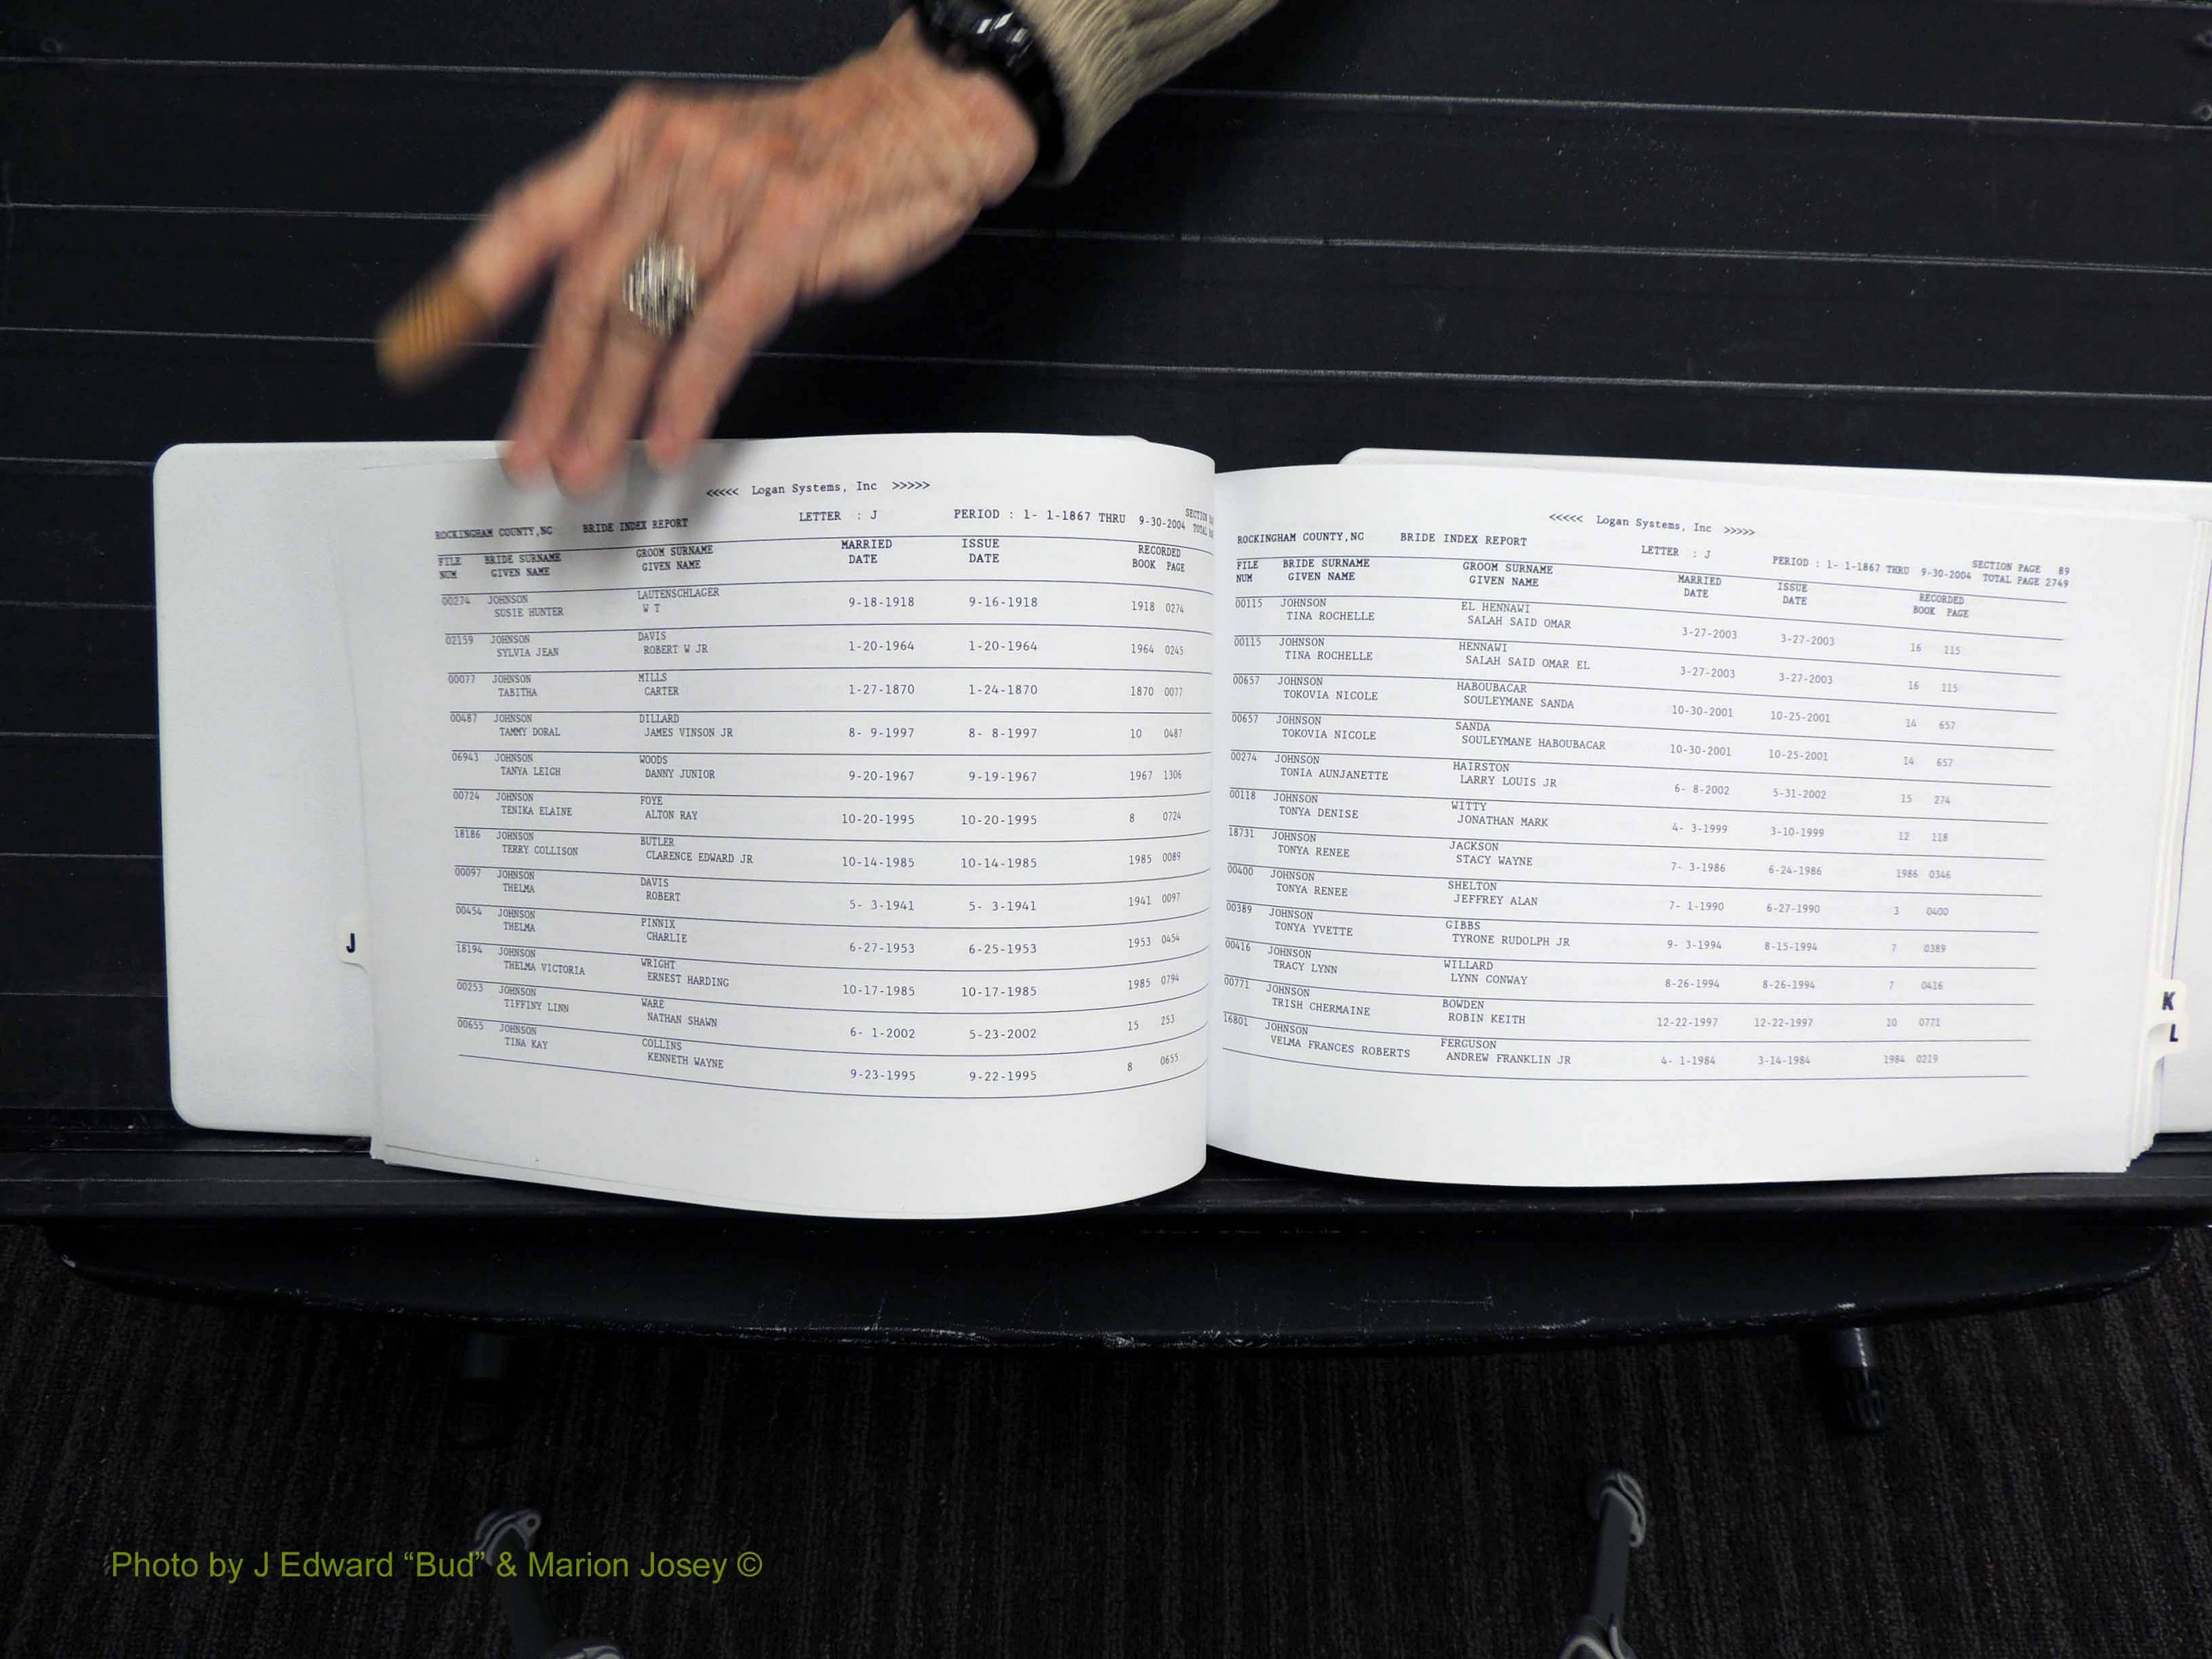 <<<<< Logan Systems, Inc >>>>>
ROCKINGHAM COUNTY,NC BRIDE INDEX REPORT LETTER : J PERIOD : 1- 1-1867 THRU 9-30-2004 SECTION
TOTAL
FILE BRIDE SURNAME GROOM SURNAME MARRIED ISSUE RECORDED
NUM GIVEN NAME GIVEN NAME DATE DATE BOOK PAGE
00274 JOHNSON LAUTENSCHLAGER
SUSIE HUNTER W T 9-18-1918 9-16-1918 1918 0274
02159 JOHNSON DAVIS
SYLVIA JEAN ROBERT W JR 1-20-1964 1-20-1964 1964 0245
00077 JOHNSON MILLS
TABITHA CARTER 1-27-1870 1-24-1870 1870 0077
00487 JOHNSON DILLARD
TAMMY DORAL JAMES VINSON JR 8- 9-1997 8- 8-1997 10 0487
06943 JOHNSON WOODS
TANYA LEIGH DANNY JUNIOR 9-20-1967 9-19-1967 1967 1306
00724 JOHNSON FOYE
TENIKA ELAINE ALTON RAY 10-20-1995 10-20-1995 8 0724
18186 JOHNSON BUTLER
TERRY COLLISON CLARENCE EDWARD JR 10-14-1985 10-14-1985 1985 0089
00097 JOHNSON DAVIS
THELMA ROBERT 5- 3-1941 5- 3-1941 1941 0097
00454 JOHNSON PINNIX
THELMA CHARLIE 6-27-1953 6-25-1953 1953 0454
18194 JOHNSON WRIGHT
THELMA VICTORIA ERNEST HARDING 10-17-1985 10-17-1985 1985 0794
00253 JOHNSON WARE
TIFFINY LINN NATHAN SHAWN 6- 1-2002 5-23-2002 15 253
00655 JOHNSON COLLINS
TINA KAY KENNETH WAYNE 9-23-1995 9-22-1995 8 0655
J
<<<<< Logan Systems, Inc >>>>>
ROCKINGHAM COUNTY,NC BRIDE INDEX REPORT LETTER : J PERIOD : 1- 1-1867 THRU 9-30-2004 SECTION PAGE 89
TOTAL PAGE 2749
FILE BRIDE SURNAME GROOM SURNAME MARRIED ISSUE RECORDED
NUM GIVEN NAME GIVEN NAME DATE DATE BOOK PAGE
00115 JOHNSON EL HENNAWI
TINA ROCHELLE SALAH SAID OMAR 3-27-2003 3-27-2003 16 115
00115 JOHNSON HENNAWI
TINA ROCHELLE SALAH SAID OMAR EL 3-27-2003 3-27-2003 16 115
00657 JOHNSON HABOUBACAR
TOKOVIA NICOLE SOULEYMANE SANDA 10-30-2001 10-25-2001 14 657
00657 JOHNSON SANDA
TOKOVIA NICOLE SOULEYMANE HABOUBACAR 10-30-2001 10-25-2001 14 657
00274 JOHNSON HAIRSTON
TONIA AUNJANETTE LARRY LOUIS JR 6- 8-2002 5-31-2002 15 274
00118 JOHNSON WITTY
TONYA DENISE JONATHAN MARK 4- 3-1999 3-10-1999 12 118
18731 JOHNSON JACKSON
TONYA RENEE STACY WAYNE 7- 3-1986 6-24-1986 1986 0346
00400 JOHNSON SHELTON
TONYA RENEE JEFFREY ALAN 7- 1-1990 6-27-1990 3 0400
00389 JOHNSON GIBBS
TONYA YVETTE TYRONE RUDOLPH JR 9- 3-1994 8-15-1994 7 0389
00416 JOHNSON WILLARD
TRACY LYNN LYNN CONWAY 8-26-1994 8-26-1994 7 0416
00771 JOHNSON BOWDEN
TRISH CHERMAINE ROBIN KEITH 12-22-1997 12-22-1997 10 0771
16801 JOHNSON FERGUSON
VELMA FRANCES ROBERTS ANDREW FRANKLIN JR 4- 1-1984 3-14-1984 1984 0219
K
L
Photo by J Edward “Bud” & Marion Josey ©